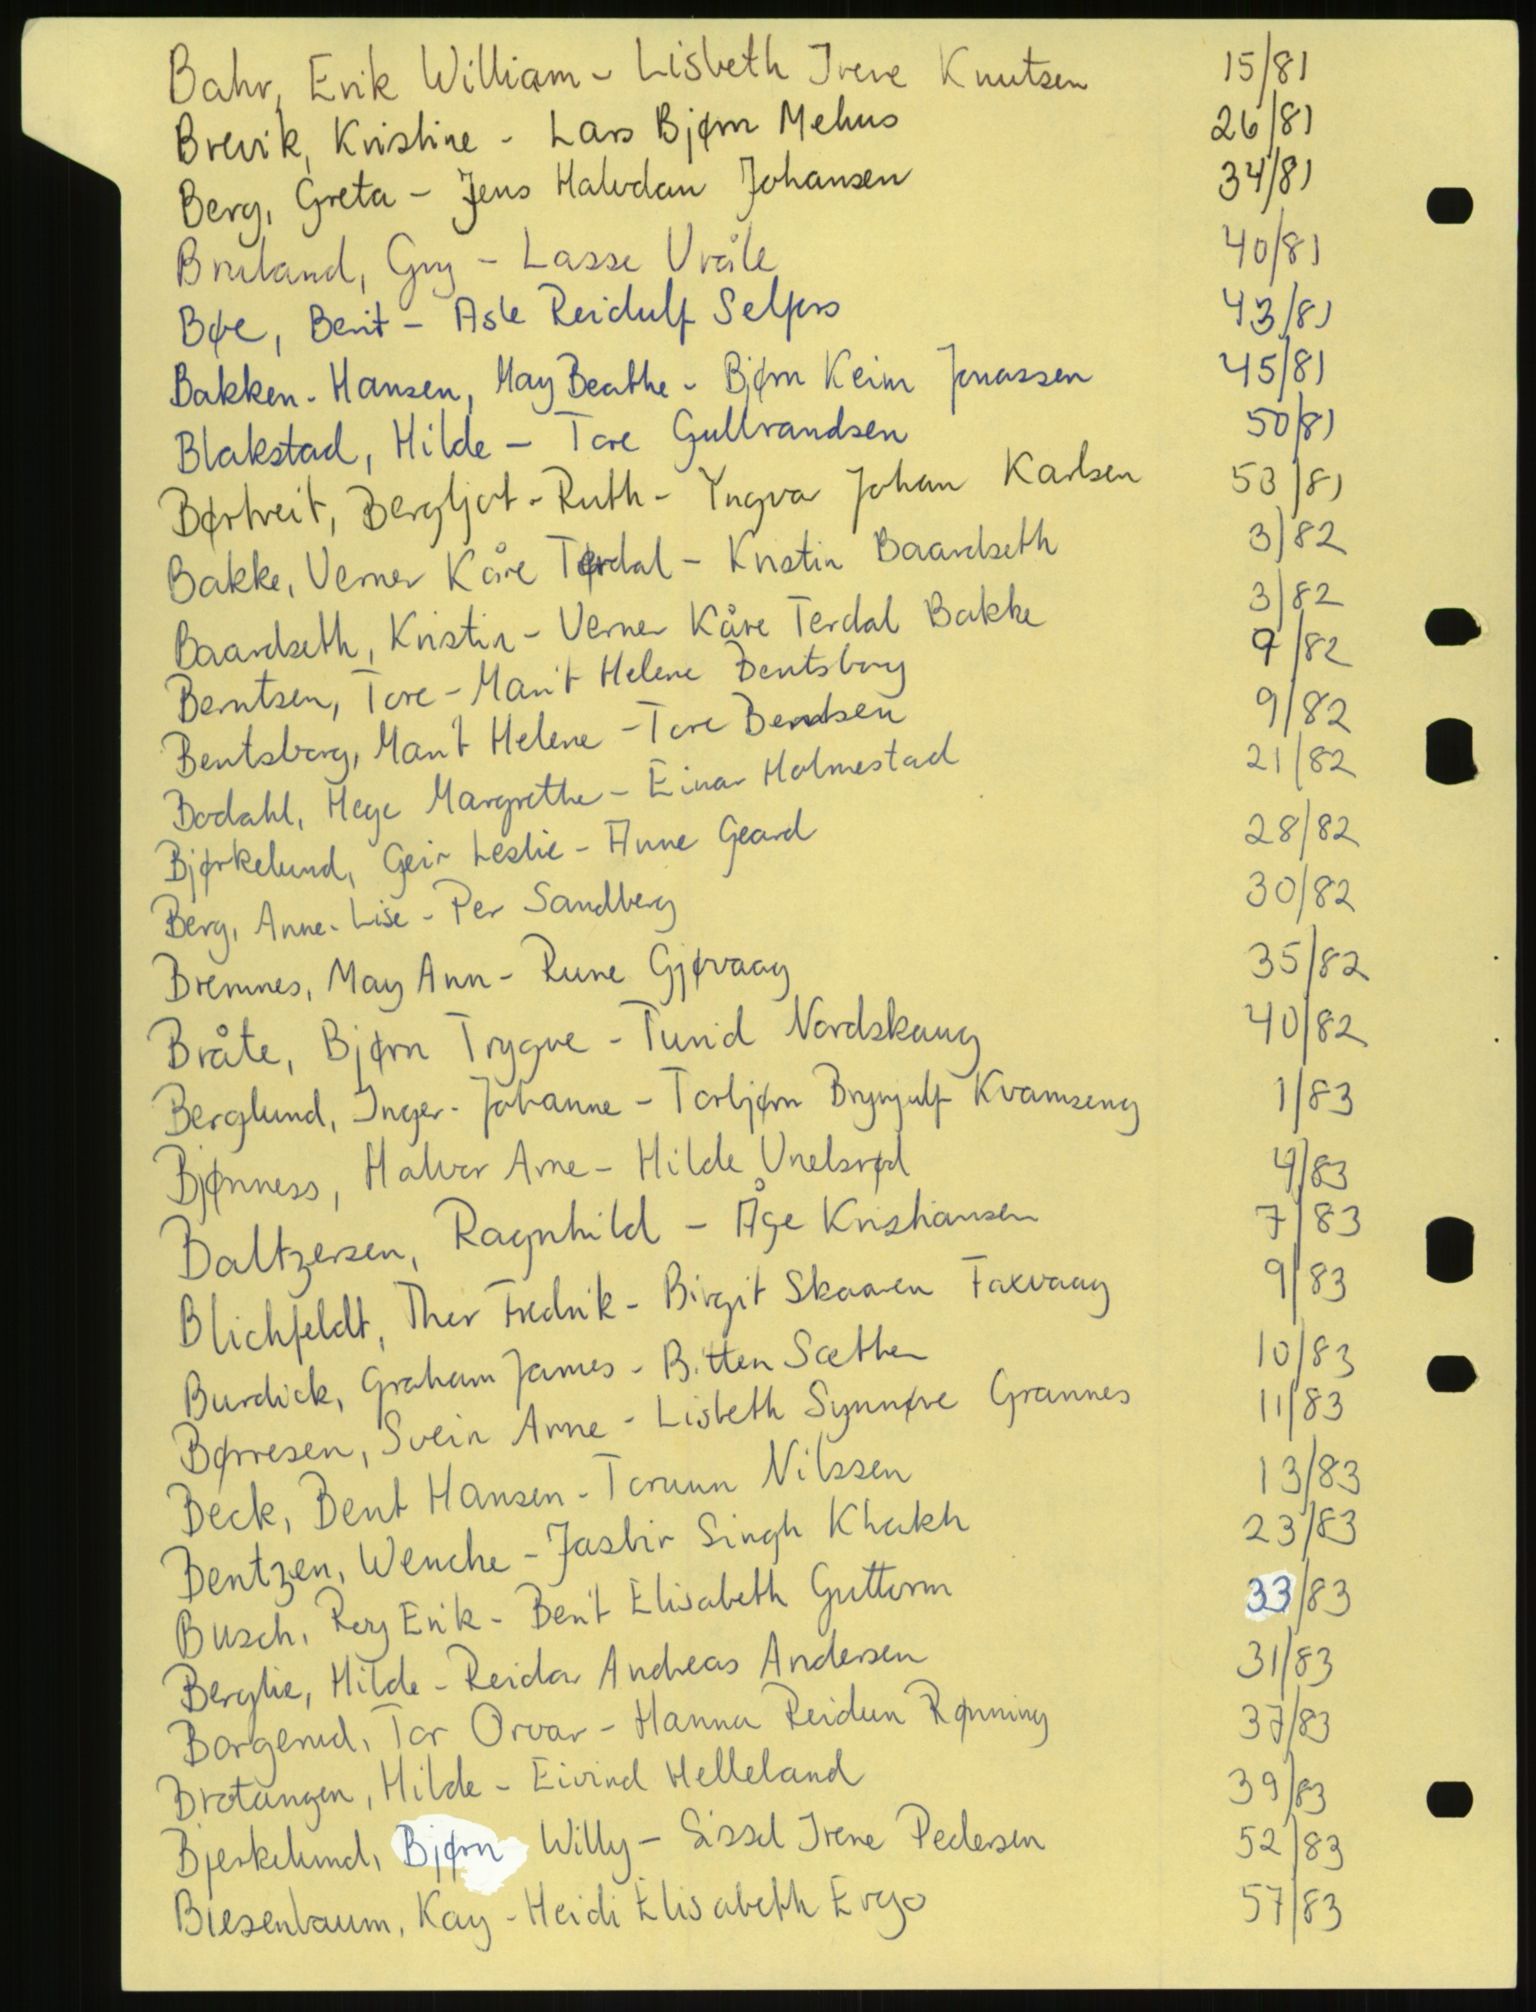 Bahr, Erik William - Lisbeth Irene Knutsen 15/81
Brevik, Kristine - Lars Bjørn Mehus 26/81
Berg, Greta - Jens Halvdan Johansen 34/81
Bruland, Gry - Lasse Uråle 40/81
Bøe, Berit - Asle Reidulf Selfors 43/81
Bakken-Hansen, May Beathe - Bjørn Keim Jonassen 45/81
Blakstad, Hilde - Tore Gulbrandsen 50/81
Børtveit, Bergljot-Ruth - Yngvar Johan Karlsen 53/81
Bakke, Verner Kåre Terdal - Kristin Baardseth 3/82
Baardseth, Kristin - Verner Kåre Terdal Bakke 3/82
Berntsen, Tore - Marit Helene Bentsborg 9/82
Bentsborg, Marit Helene - Tore Berntsen 9/82
Bodahl, Hege Margrethe - Einar Holmestad 21/82
Bjørkelund, Geir Leslie - Anne Geard 28/82
Berg, Anne-Lise - Per Sandberg 30/82
Bremnes, May Ann - Rune Gjøvaag 35/82
Bråte, Bjørn Trygve - Turid Nordskaug 40/82
Berglund, Inger-Johanne - Torbjørn Brynjulf Kvamseng 1/83
Bjønness, Halvor Arne - Hilde Unelsrød 4/83
Baltzersen, Ragnhild - Åge Kristiansen 7/83
Blichfeldt, Thor Fredrik - Birgit Skaaren Faxvaag 9/83
Burdick, Graham James - Bitten Sæther 10/83
Børresen, Svein Arne - Lisbeth Synnøve Grannes 11/83
Beck, Bent Hansen - Torunn Nilssen 13/83
Bentzen, Wenche - Jasbir Singh Khakh 23/83
Busch, Roy Erik - Berit Elisabeth Guttorm 33/83
Berglie, Hilde - Reidar Andreas Andersen 31/83
Borgerud, Tor Orvar - Hanna Reidun Rønning 37/83
Brotangen, Hilde - Eivind Helleland 39/83
Bjerkelund, Bjørn Willy - Sissel Irene Pedersen 52/83
Biesenbaum, Kay - Heidi Elisabeth Evjo 57/83